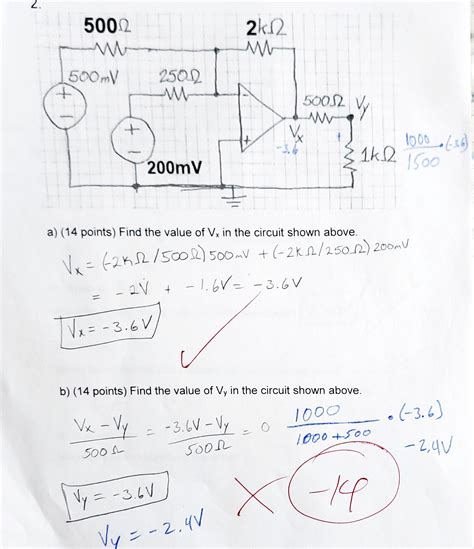 2.
500Ω
2kΩ
500mV
250Ω
500Ω
Vy
+
-
+
-
-
+
Vx
-3.6
+
1kΩ
1000/1500 · (-3.6)
200mV
a) (14 points) Find the value of Vx in the circuit shown above.
Vx = (-2kΩ/500Ω)500mV + (-2kΩ/250Ω)200mV
= -2V + -1.6V = -3.6V
Vx = -3.6V
b) (14 points) Find the value of Vy in the circuit shown above.
Vx - Vy / 500Ω = -3.6V - Vy / 500Ω = 0
1000 / 1000+500 · (-3.6)
-2.4V
Vy = -3.6V
-14
Vy = -2.4V